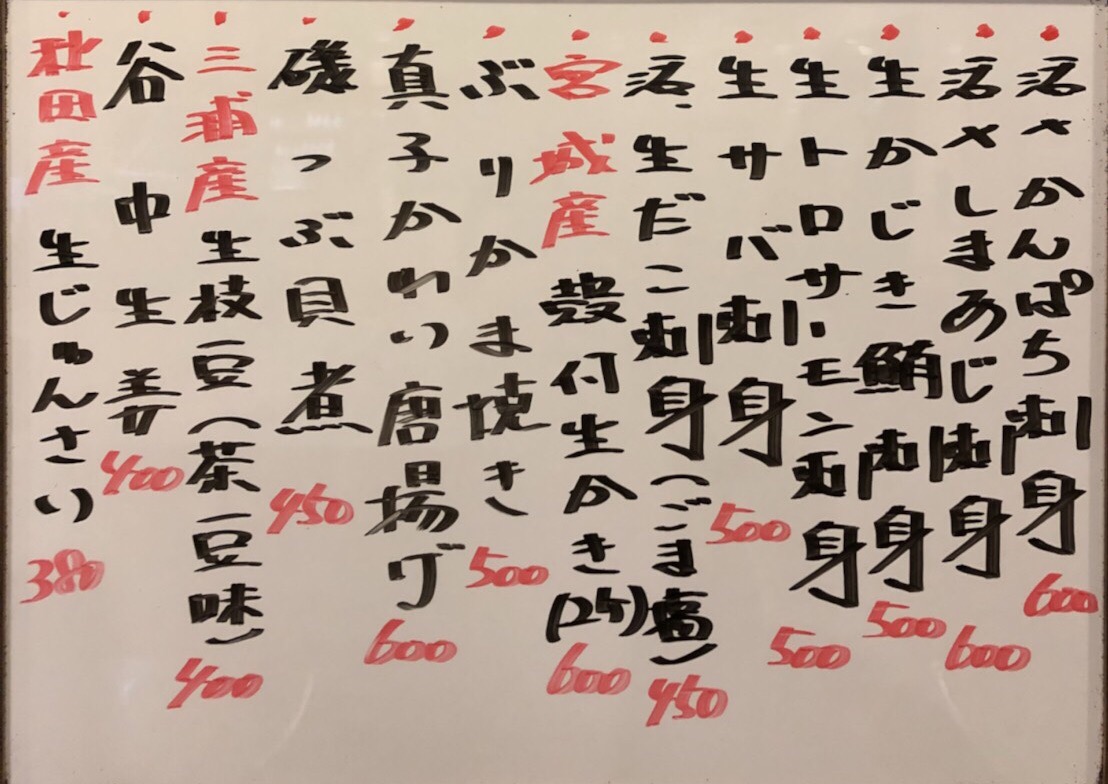 活〆かんぱち刺身 600
活〆しまあじ刺身 600
生かじき鮪刺身 500
生トロサーモン刺身 500
生サバ刺身 500
活、生だこ刺身(ごま塩) 450
宮城産 殻付生かき(2ケ) 600
ぶりかま焼き 500
真子かれい唐揚げ 600
磯つぶ貝煮 450
三浦産生枝豆(茶豆味) 400
谷中生姜 400
秋田産 生じゅんさい 380